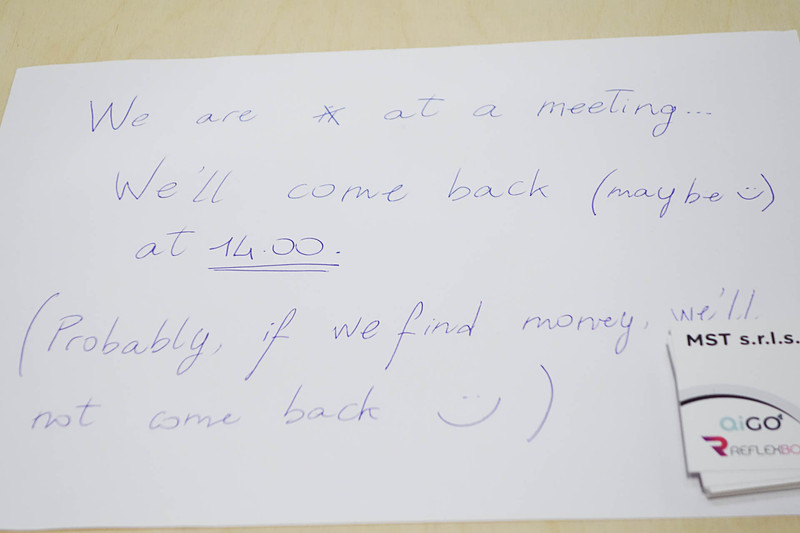 We are at a meeting...
We'll come back (maybe :))
at 14.00.
(Probably, if we find money, we'll
not come back :))
MST s.r.l.s.
aiGO
REFLEXBO